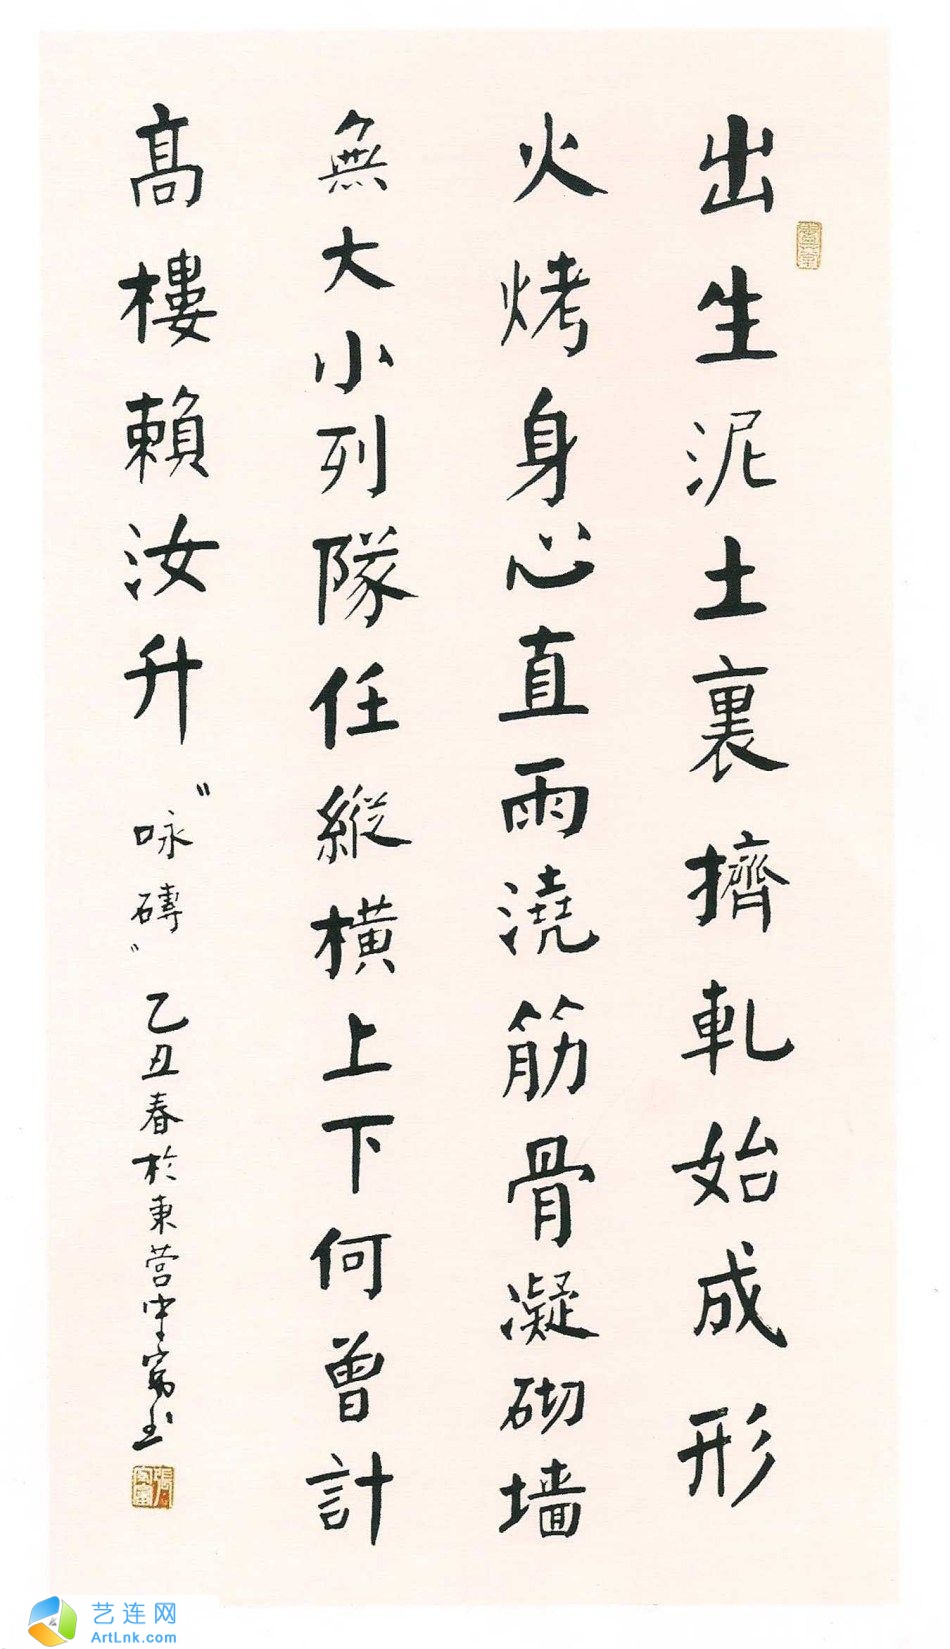 出生泥土裏擠軋始成形
火烤身心直雨澆筋骨凝砌墙
無大小列隊任縱橫上下何曾計
高樓賴汝升 "咏磚" 乙丑春於東营守富书
艺连网
ArtLnk.com